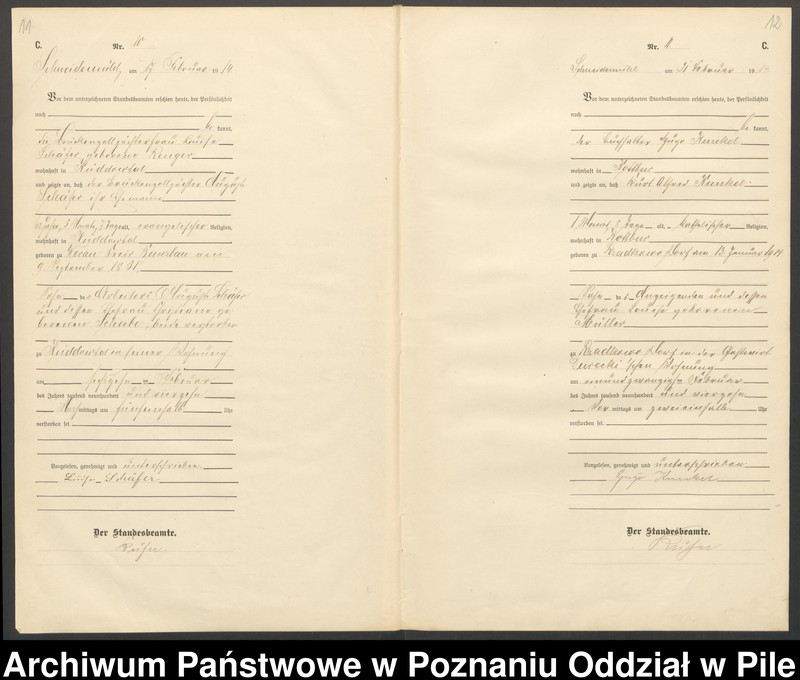 11
C.
Nr. 10
Schneidemühl, am 17 Februar 1914
Vor dem unterzeichneten Standesbeamten erschien heute, der Persönlichkeit
nach
be kannt,
die Luise
Schäfer geborene
wohnhaft in Küddowtal
und zeigte an, daß der August
Schäfer ihr Ehemann
evangelischer Religion,
wohnhaft in Küddowtal
geboren zu Kreis Bunzlau am
9 September 18
Sohn des Arbeiters August Schäfer
und dessen Ehefrau ge
borenen beide verstorben
zu Küddowtal in seiner Wohnung
am Februar
des Jahres tausend neunhundert und vierzehn
Nachmittags um Uhr
verstorben sei.
Vorgelesen, genehmigt und unterschrieben
Luise Schäfer
Der Standesbeamte.
12
Nr. 11
C.
Schneidemühl am 21 Februar 1914
Vor dem unterzeichneten Standesbeamten erschien heute, der Persönlichkeit
nach
be kannt,
der Buchhalter Hugo Kunkel
wohnhaft in Kottbus
und zeigte an, daß Kurt Alfred Kunkel
1 Monat 8 Tage alt, katholischer Religion,
wohnhaft in Kottbus
geboren zu Dorf am 13. Januar 1914
Sohn des Anzeigenden und dessen
Ehefrau Louise geborenen
Müller
zu Dorf in der Gastwirt
Wohnung
am einundzwanzigsten Februar
des Jahres tausend neunhundert und vierzehn
Vor mittags um Uhr
verstorben sei.
Vorgelesen, genehmigt und unterschrieben
Hugo Kunkel
Der Standesbeamte.
Archiwum Państwowe w Poznaniu Oddział w Pile